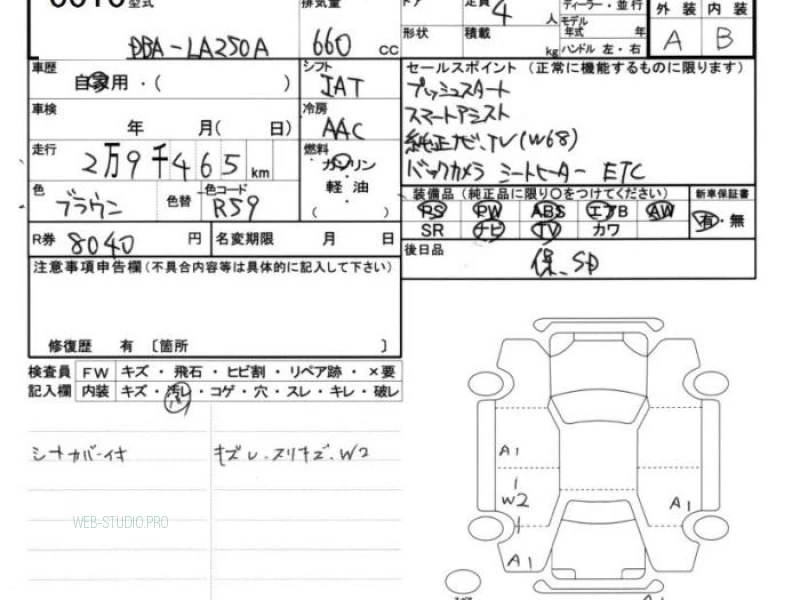 型式
排気量
定員 4 人
ディーラー・並行
外装 内装
DBA-LA250A
660 cc
形状
積載 kg
モデル
年式 年
ハンドル 左・右
A B
車歴
自家用・( )
シフト
IAT
セールスポイント(正常に機能するものに限ります)
プッシュスタート
スマートアシスト
純正ナビ、TV(W68)
バックカメラ シートヒーター ETC
車検
年 月( 日)
冷房
AAC
走行
2万9千465km
燃料
ガソリン
・
軽油
( )
色
ブラウン
色替
色コード
R59
装備品(純正品に限り○をつけてください)
新車保証書
PS PW ABS エアB AW
SR ナビ TV カワ
有・無
R券 8040 円
名変期限 月 日
後日品
保、SD
注意事項申告欄(不具合内容等は具体的に記入して下さい)
修復歴 有 〔箇所 〕
検査員 FW キズ・飛石・ヒビ割・リペア跡・×要
記入欄 内装 キズ・汚レ・コゲ・穴・スレ・キレ・破レ
シートカバー付
キズレ、スリキズ、W2
A1
W2
A1
A1
WEB-STUDIO.PRO